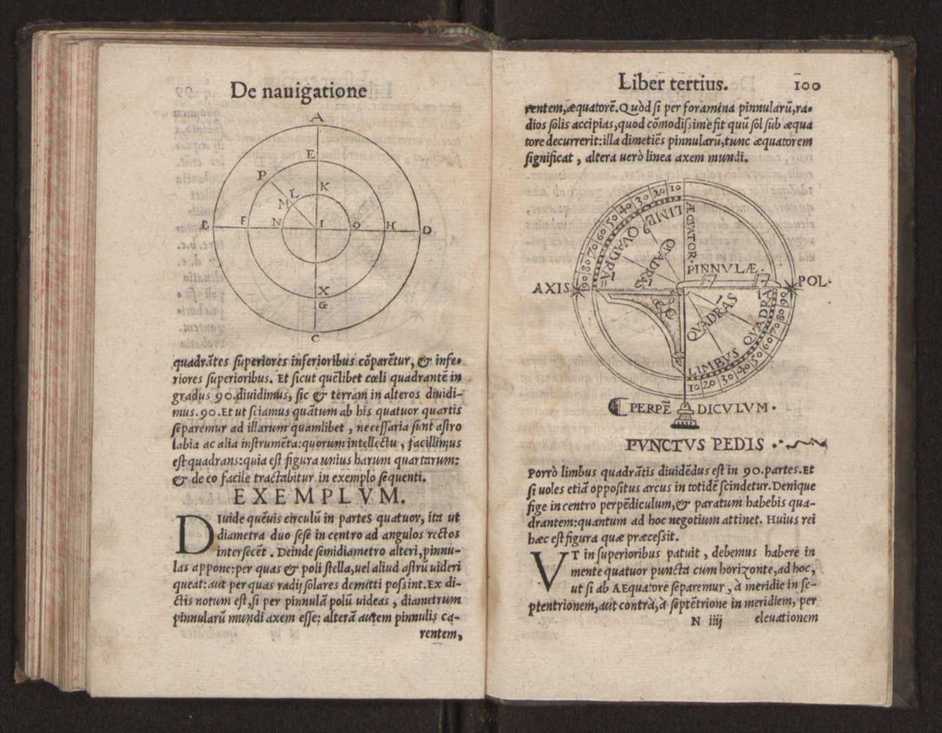 De nauigatione
A
E
P
K
L
M
B F N I O H D
X
G
C
quadrātes superiores inferioribus cōparētur, & infe-
riores superioribus. Et sicut quēlibet cœli quadrantē in
gradus 90. diuidimus, sic & terram in alteros diuidi-
mus. 90. Et ut sciamus quātum ab his quatuor quartis
separemur ad illarum quamlibet, necessaria sunt astro
labia ac alia instrumēta: quorum intellectu, facillimus
est quadrans: quia est figura unius harum quartarum:
& de eo facile tractabitur in exemplo sequenti.
EXEMPLVM.
DIuide quēuis circulū in partes quatuor, ita ut
diametra duo sese in centro ad angulos rectos
intersecēt. Deinde semidiametro alteri, pinnu-
las appone: per quas & poli stella, uel aliud astrū uideri
queat: aut per quas radij solares demitti possint. Ex di-
ctis notum est, si per pinnulā polū uideas, diametrum
pinnularū mundi axem esse: alterā autem pinnulis ca-
rentem,
Liber tertius. 100
rentem, æquatorē. Quòd si per foramina pinnularū, ra-
dios solis accipias, quod cōmodiss. imè fit quū sol sub æqua
tore decurrerit: illa dimetiēs pinnularū, tunc æquatorem
significat, altera uerò linea axem mundi.
90 80 70 60 50 40 30 20 10
LIMB9
QVADRĀ
QVADRAS
ÆQVATOR.
PINNVLÆ.
AXIS
POL9
QVADRAS
LIMBVS QVADRĀ
10 20 30 40 50 60 70 80 90
PERPĒDICVLVM.
PVNCTVS PEDIS.
Porrò limbus quadrātis diuidēdus est in 90. partes. Et
si uoles etiā oppositus arcus in totidē scindetur. Denique
fige in centro perpēdiculum, & paratum habebis qua-
drantem: quantum ad hoc negotium attinet. Huius rei
hæc est figura quæ præcessit.
VT in superioribus patuit, debemus habere in
mente quatuor puncta cum horizonte, ad hoc,
ut si ab AEquatore separemur, à meridie in se-
ptentrionem, aut contrà, à septētrione in meridiem, per
N iiij eleuationem